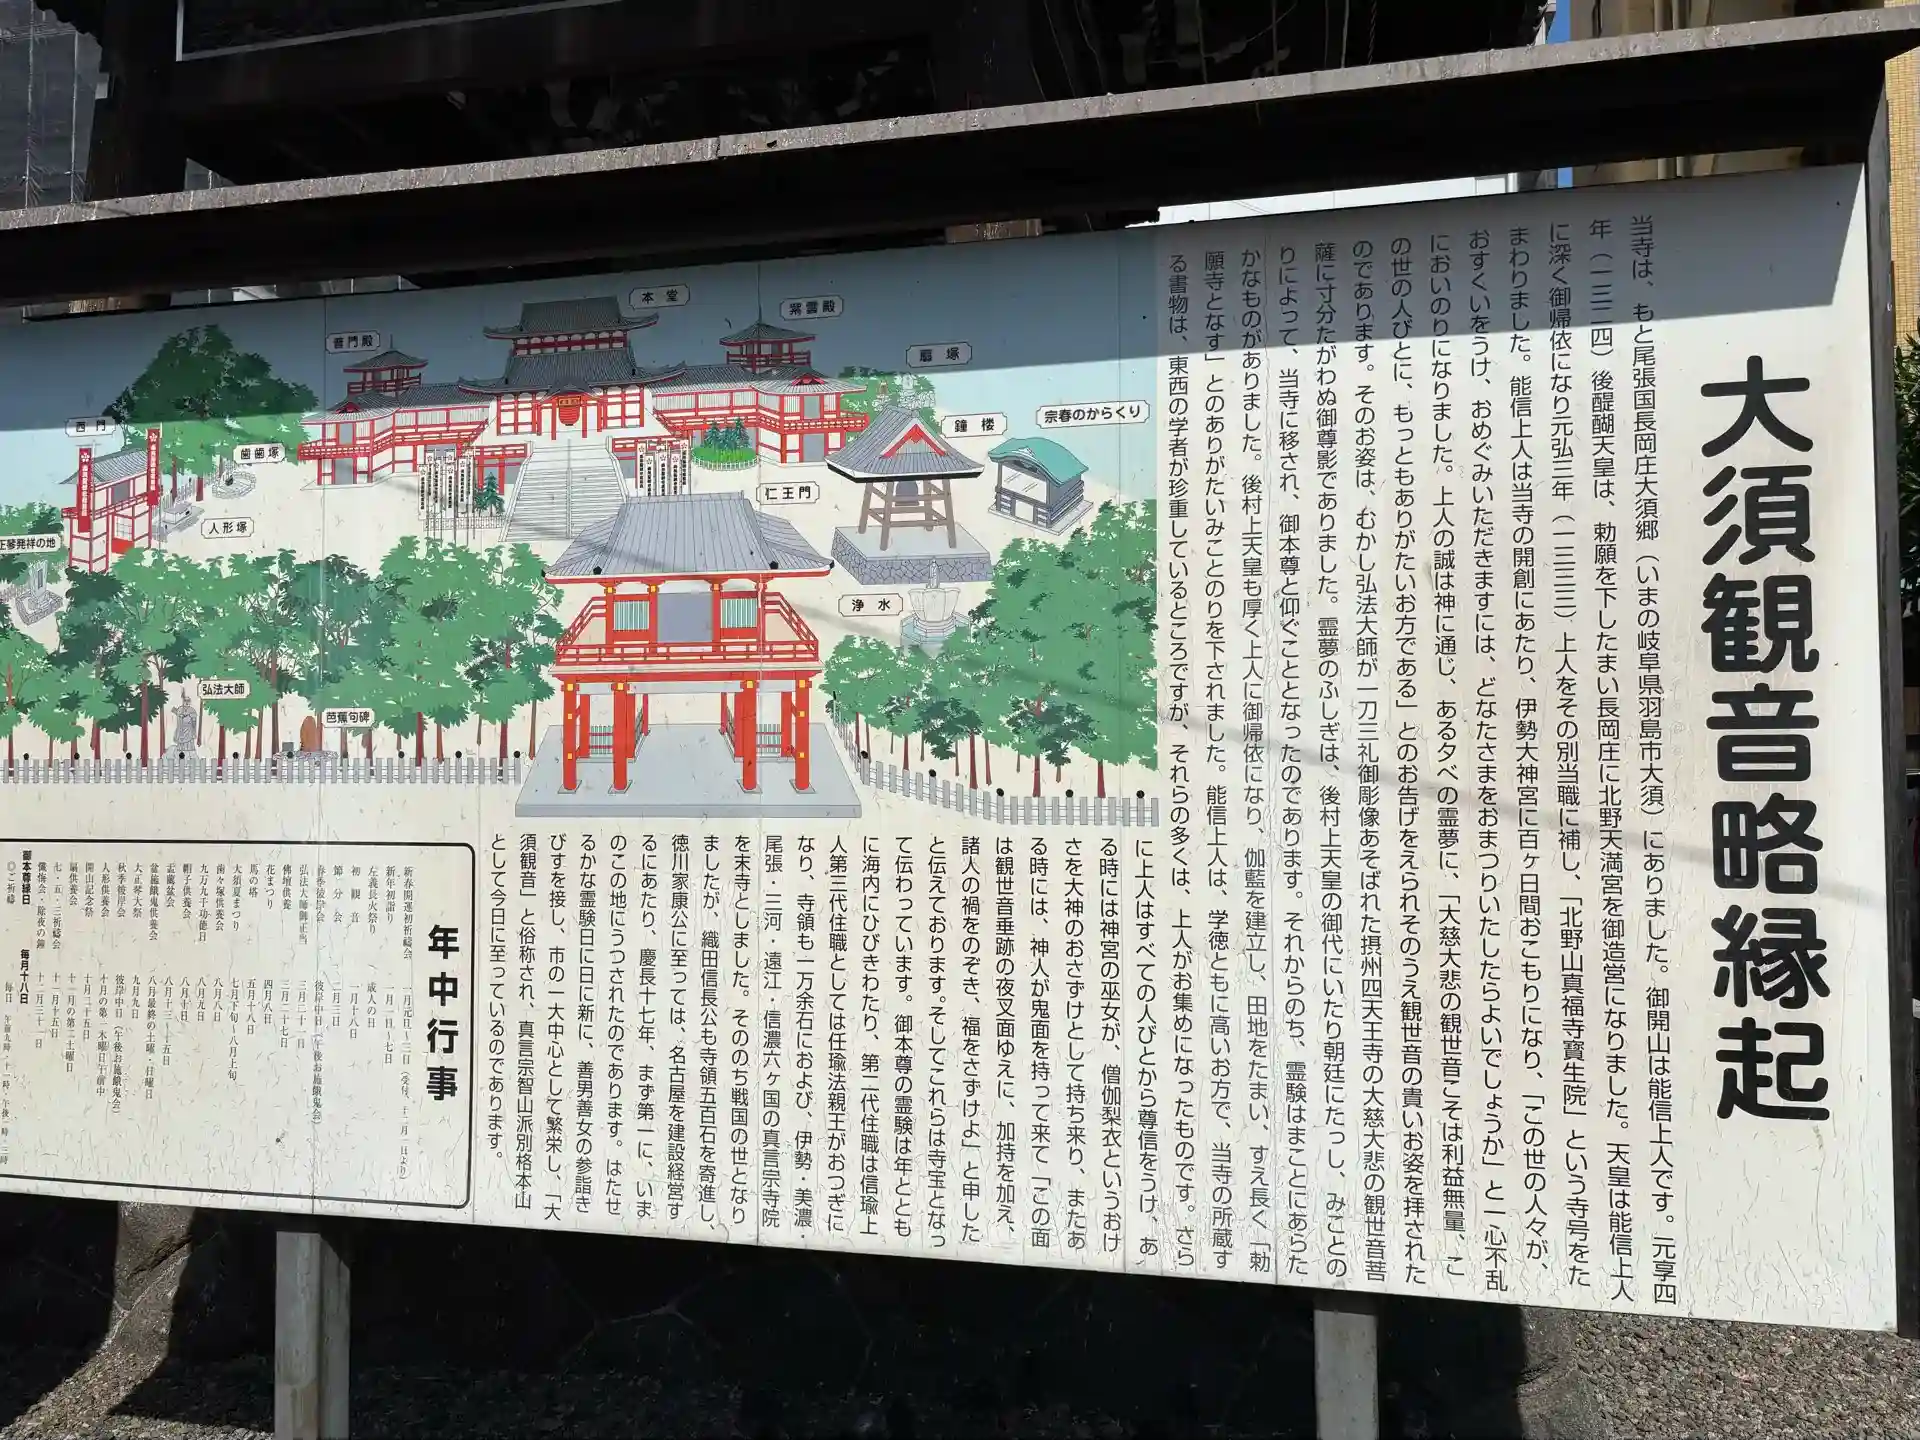 大須観音略縁起
当寺は、もと尾張国長岡庄大須郷（いまの岐阜県羽島市大須）にありました。御開山は能信上人です。元享四
年（一三二四）後醍醐天皇は、勅願を下したまい長岡庄に北野天満宮を御造営になりました。天皇は能信上人
に深く御帰依になり元弘三年（一三三三）上人をその別当職に補し、「北野山真福寺寳生院」という寺号をた
まわりました。能信上人は当寺の開創にあたり、伊勢大神宮に百ヶ日間おこもりになり、「この世の人々が、
おすくいをうけ、おめぐみいただきますには、どなたさまをおまつりいたしたらよいでしょうか」と一心不乱
においのりになりました。上人の誠は神に通じ、ある夕べの霊夢に、「大慈大悲の観世音こそは利益無量、こ
の世の人びとに、もっともありがたいお方である」とのお告げをえられそのうえ観世音の貴いお姿を拝された
のであります。そのお姿は、むかし弘法大師が一刀三礼御彫像あそばれた摂州四天王寺の大慈大悲の観世音菩
薩に寸分たがわぬ御尊影でありました。霊夢のふしぎは、後村上天皇の御代にいたり朝廷にたっし、みことの
りによって、当寺に移され、御本尊と仰ぐこととなったのであります。それからのち、霊験はまことにあらた
かなものがありました。後村上天皇も厚く上人に御帰依になり、伽藍を建立し、田地をたまい、すえ長く「勅
願寺となす」とのありがたいみことのりを下されました。能信上人は、学徳ともに高いお方で、当寺の所蔵す
る書物は、東西の学者が珍重しているところですが、それらの多くは、上人がお集めになったものです。さら
に上人はすべての人びとから尊信をうけ、あ
る時には神宮の巫女が、僧伽梨衣というおけ
さを大神のおさずけとして持ち来り、またあ
る時には、神人が鬼面を持って来て「この面
は観世音垂跡の夜叉面ゆえに、加持を加え、
諸人の禍をのぞき、福をさずけよ」と申した
と伝えております。そしてこれらは寺宝となっ
て伝わっています。御本尊の霊験は年ととも
に海内にひびきわたり、第二代住職は信瑜上
人第三代住職としては任瑜法親王がおつぎに
なり、寺領も一万余石におよび、伊勢・美濃・
尾張・三河・遠江・信濃六ヶ国の真言宗寺院
を末寺としました。そののち戦国の世となり
ましたが、織田信長公も寺領五百石を寄進し、
徳川家康公に至っては、名古屋を建設経営す
るにあたり、慶長十七年、まず第一に、いま
のこの地にうつされたのであります。はたせ
るかな霊験日に日に新に、善男善女の参詣き
びすを接し、市の一大中心として繁栄し、「大
須観音」と俗称され、真言宗智山派別格本山
として今日に至っているのであります。
本堂
紫雲殿
普門殿
扇塚
宗春のからくり
鐘楼
西門
歯歯塚
仁王門
人形塚
正琴発祥の地
浄水
弘法大師
芭蕉句碑
年中行事
新春開運初祈祷会 一月元旦〜三日（受付、十二月一日より）
新年初詣り 一月一日〜七日
左義長火祭り 成人の日
初観音 一月十八日
節分会 二月三日
春季彼岸会 彼岸中日（午後お施餓鬼会）
弘法大師御正当 三月二十一日
佛壇供養 三月二十七日
花まつり 四月八日
馬の塔 五月十八日
大須夏まつり 七月下旬〜八月上旬
歯々塚供養会 八月八日
九万九千功徳日 八月九日
帽子供養会 八月十日
盂蘭盆会 八月十三〜十五日
盆施餓鬼供養会 八月最終の土曜、日曜日
大正琴大祭 九月九日
秋季彼岸会 彼岸中日（午後お施餓鬼会）
人形供養会 十月の第一木曜日午前中
開山記念祭 十月二十五日
扇供養会 十一月の第二土曜日
七・五・三祈祷会 十一月十五日
懺悔会・除夜の鐘 十二月三十一日
御本尊縁日 毎月十八日
◎ご祈祷 毎日 午前九時・十一時、午後一時・三時